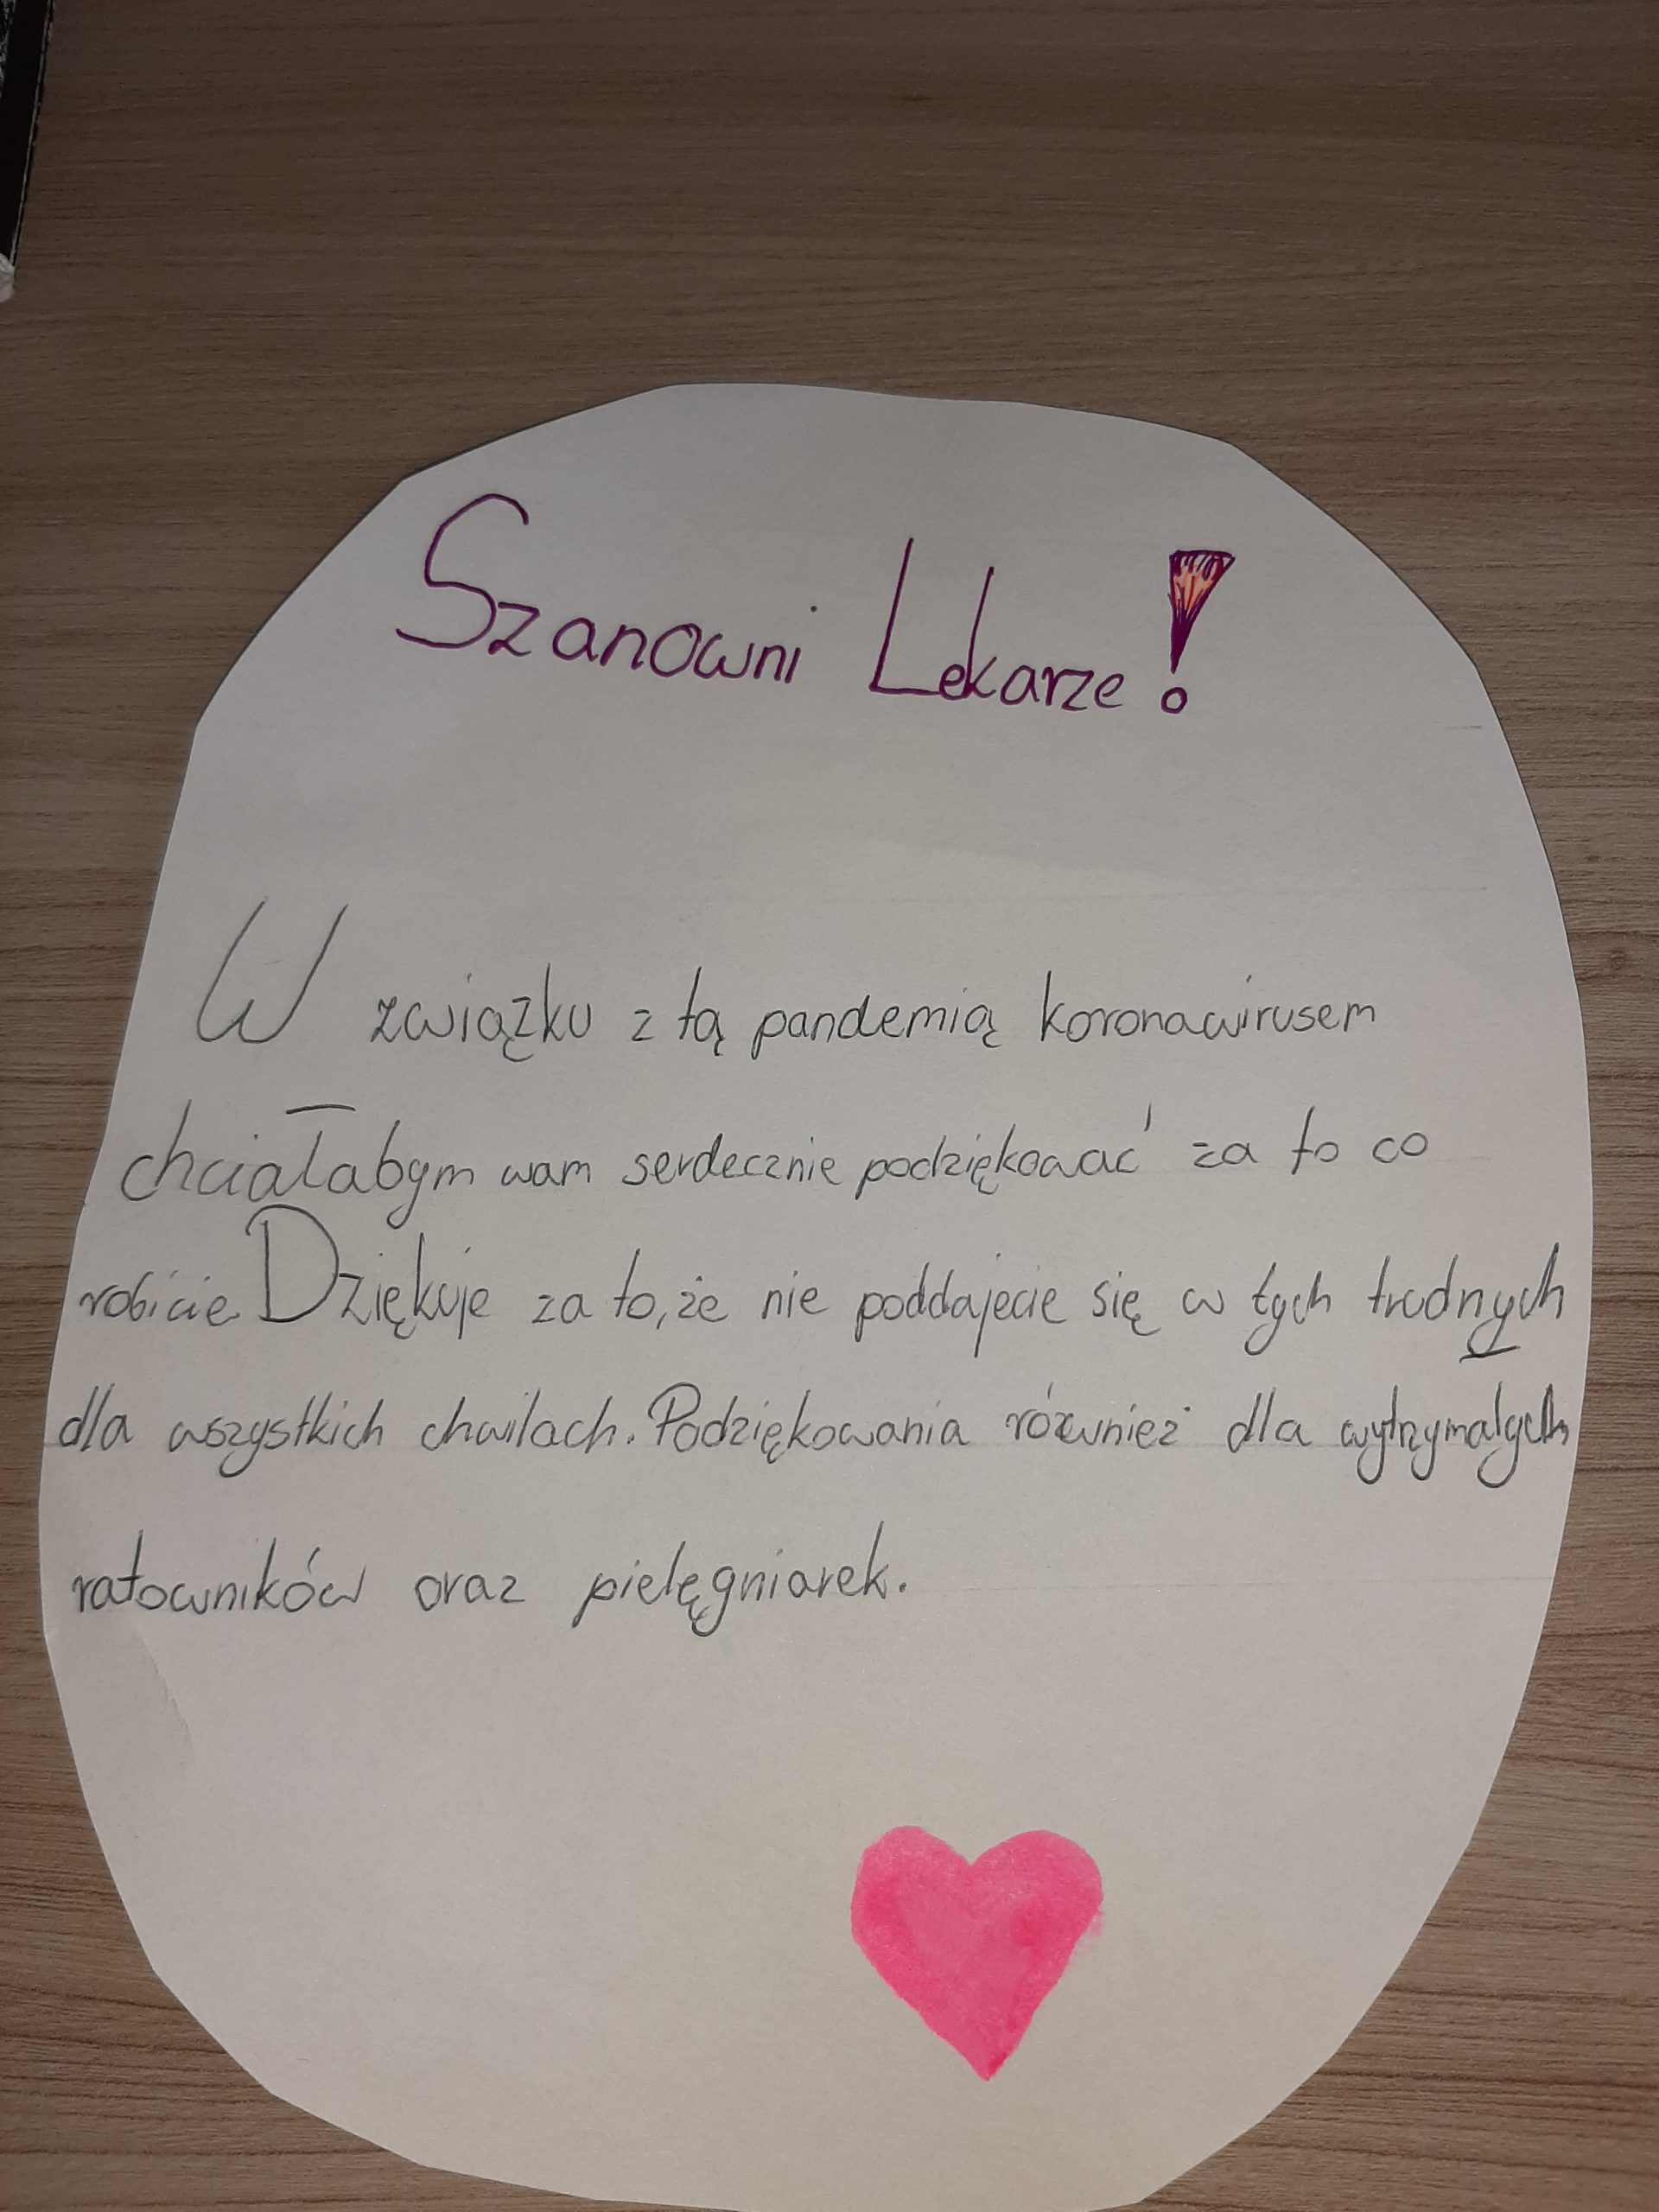 Szanowni Lekarze!
W związku z tą pandemią koronawirusem
chciałabym wam serdecznie podziękować za to co
robicie. Dziękuje za to, że nie poddajecie się w tych trudnych
dla wszystkich chwilach. Podziękowania również dla wytrzymałych
ratowników oraz pielęgniarek.